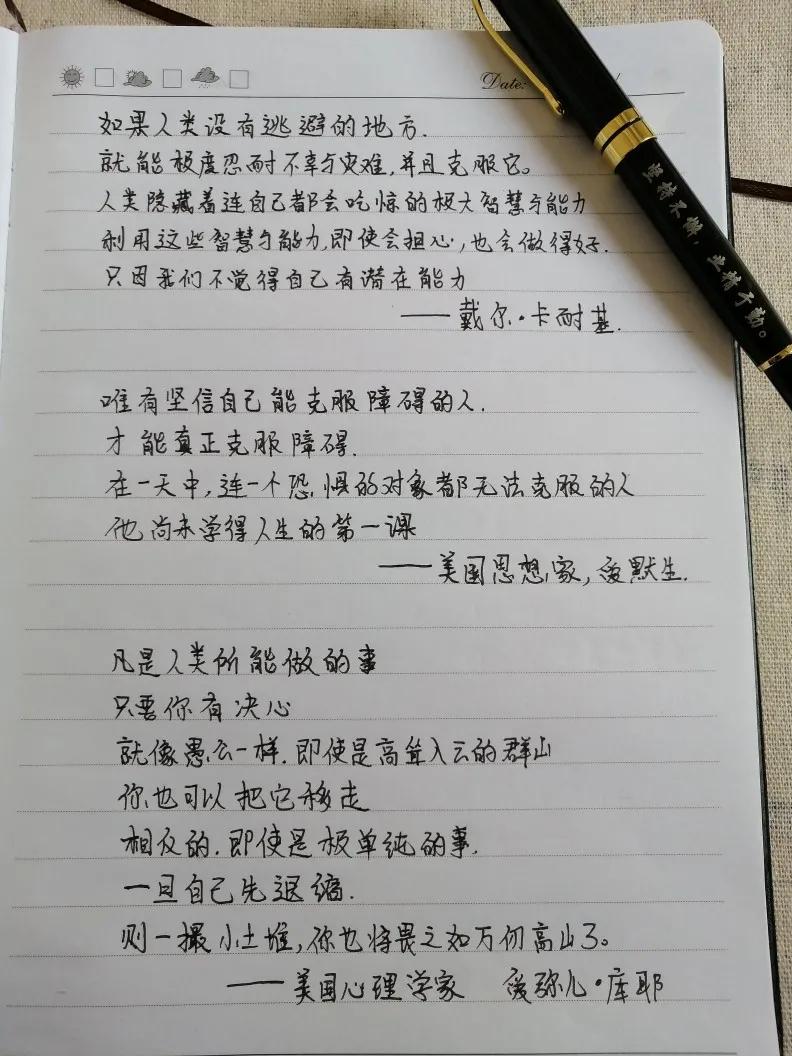 Date:
如果人类没有逃避的地方.
就能极度忍耐不幸与灾难,并且克服它。
人类隐藏着连自己都会吃惊的极大智慧与能力
利用这些智慧与能力,即使会担心,也会做得好.
只因我们不觉得自己有潜在能力
——戴尔·卡耐基.
唯有坚信自己能克服障碍的人.
才能真正克服障碍.
在一天中,连一个恐惧的对象都无法克服的人
他尚未学得人生的第一课
——美国思想家,爱默生.
凡是人类所能做的事
只要你有决心
就像愚公一样.即使是高耸入云的群山
你也可以把它移走
相反的.即使是极单纯的事.
一旦自己先退缩.
则一撮小土堆,你也将畏之如万仞高山了。
——美国心理学家 爱弥儿·库耶
坚持不懈,业精于勤。